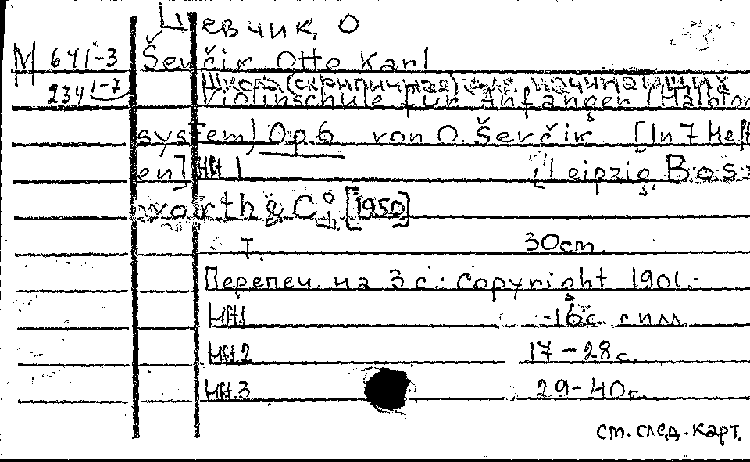 Шевчик, О
М 641-3 Ševčik Otto Karl
234 1-7 Школа (скрипичная) для начинающих
Violinschule für Anfänger (Halbton
system) Op.6 von O. Ševčik [In 7 Heft
en] НН.1 Leipzig, Bos
worth & Co [1950]
Т. 30cm.
Перепеч. на 3 с.: Copyright 1901.-
НН.1 -16с. с илл.
НН.2 17-28с.
НН.3 29-40с.
см. след. карт.